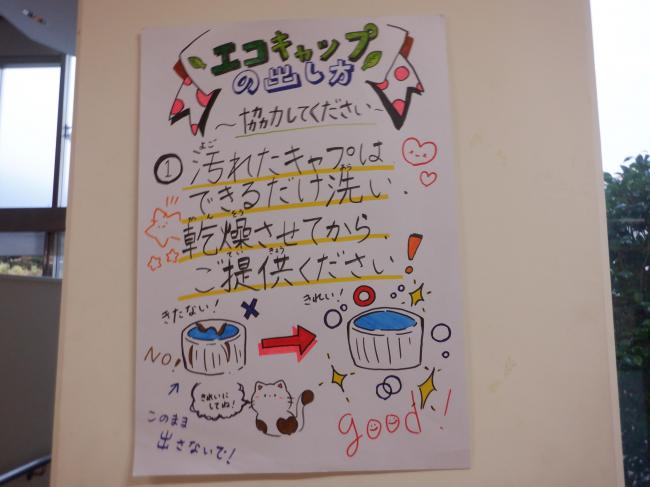 エコキャップ
の出し方
～協力してください～
① 汚れたキャプは
よご
できるだけ洗い、
あら
乾燥させてから
かんそう
ご提供ください
ていきょう
きたない!
きれい!
NO!
きれいに
してね!
このまま
出さないで!
good!